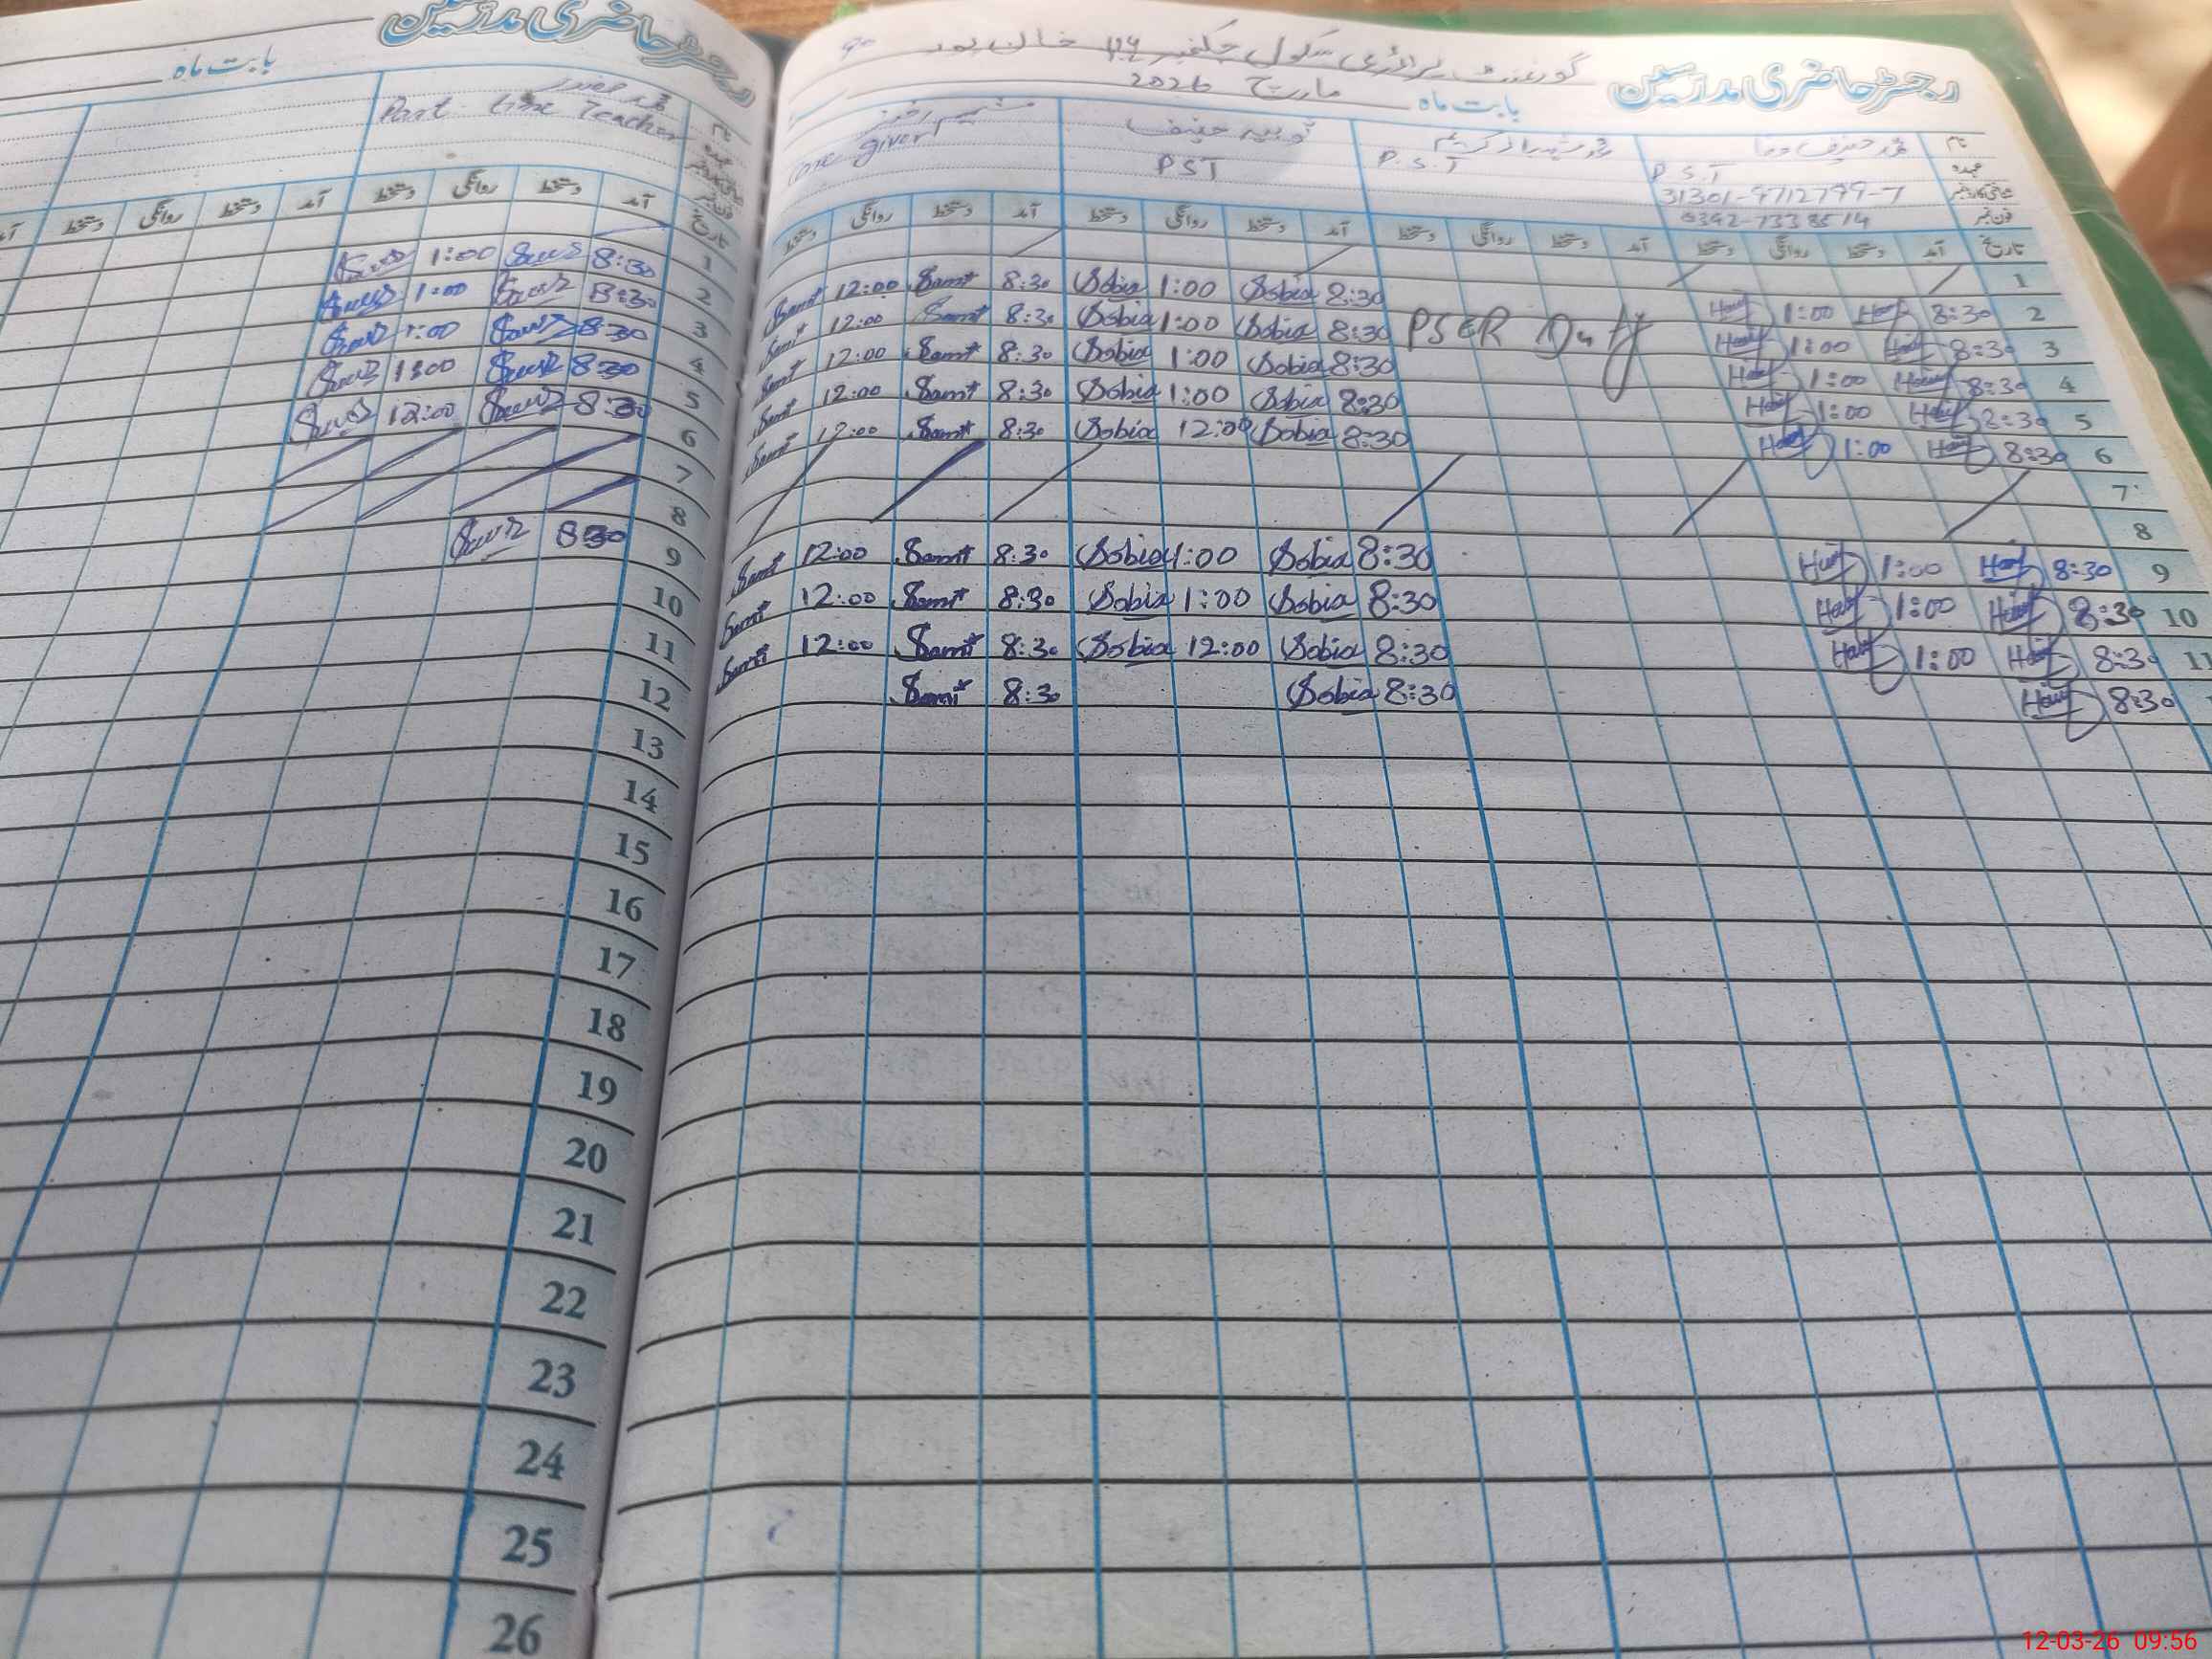 رجسٹر حاضری مدرسین
گورنمنٹ پرائمری سکول چک نمبر خان پور
بابت ماہ مارچ 2026
نام محمد حنیف
ثوبیہ حنیف
شمیم اختر
عہدہ P.S.T
P.S.T
PST
care giver
شناختی کارڈ نمبر 31301-9712799-7
فون نمبر 0342-7338514
تاریخ آمد دستخط روانگی دستخط آمد دستخط روانگی دستخط آمد دستخط روانگی دستخط آمد دستخط روانگی دستخط
1
2 8:30 Hanif 1:00 Hanif 8:30 Sobia 1:00 Sobia 8:30 12:00
PSER Duty
3 8:30 Hanif 1:00 Hanif 8:30 Sobia 1:00 Sobia 8:30 12:00
4 8:30 Hanif 1:00 Hanif 8:30 Sobia 1:00 Sobia 8:30 12:00
5 8:30 Hanif 1:00 Hanif 8:30 Sobia 1:00 Sobia 8:30 12:00
6 8:30 Hanif 1:00 Hanif 8:30 Sobia 12:00 Sobia 8:30 12:00
7
8
9 8:30 Hanif 1:00 Hanif 8:30 Sobia 1:00 Sobia 8:30 12:00
10 8:30 Hanif 1:00 Hanif 8:30 Sobia 1:00 Sobia 8:30 12:00
11 8:30 Hanif 1:00 Hanif 8:30 Sobia 12:00 Sobia 8:30 12:00
8:30 Hanif 8:30 Sobia 8:30
رجسٹر حاضری مدرسین
بابت ماہ
نام
عہدہ Part time Teacher
شناختی کارڈ نمبر
فون نمبر
تاریخ آمد دستخط روانگی دستخط آمد دستخط روانگی دستخط آمد
1 8:30 1:00
2 8:30 1:00
3 8:30 1:00
4 8:30 1:00
5 8:30 12:00
6
7
8
9 8:30
10
11
12
13
14
15
16
17
18
19
20
21
22
23
24
25
26
12-03-26 09:56